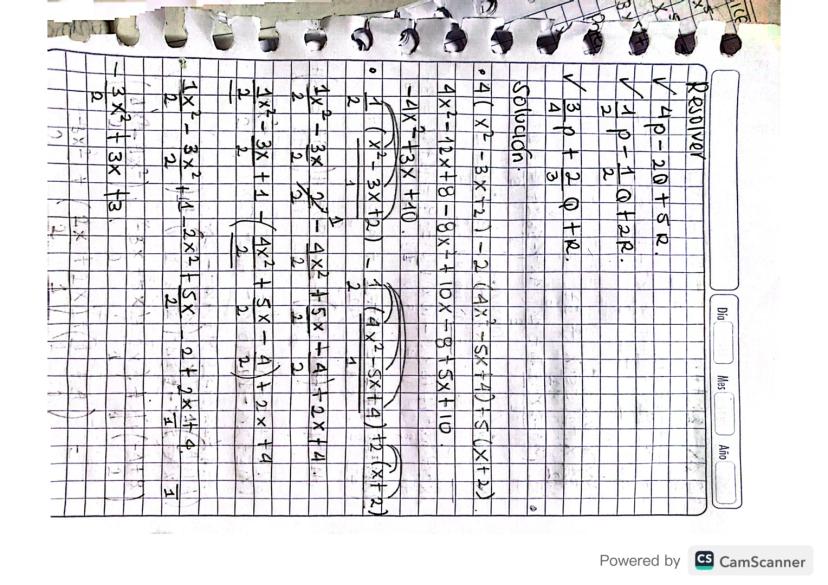 Día Mes Año
Resolver
✓ 4p - 2Q + 5R.
✓ 1/2 p - 1/2 Q + 2R.
✓ 3/4 p + 2/3 Q + R.
Solución.
• 4(x² - 3x + 2) - 2(4x² - 5x + 4) + 5(x + 2)
4x² - 12x + 8 - 8x² + 10x - 8 + 5x + 10
-4x² + 3x + 10.
• 1/2 (x² - 3x + 2)/1 - 1/2 (4x² - 5x + 4)/1 + 2(x + 2)
1x²/2 - 3x/2 2/2 1 - 4x²/2 + 5x/2 + 4/2 + 2x + 4
1x²/2 - 3x/2 + 1 - (4x²/2 + 5x/2 - 4/2) + 2x + 4
1x²/2 - 3x²/2 + 1 - 2x² + 5x/2 - 2 + 2x/1 + 4/1
- 3x²/2 + 3x + 3.
Powered by CS CamScanner